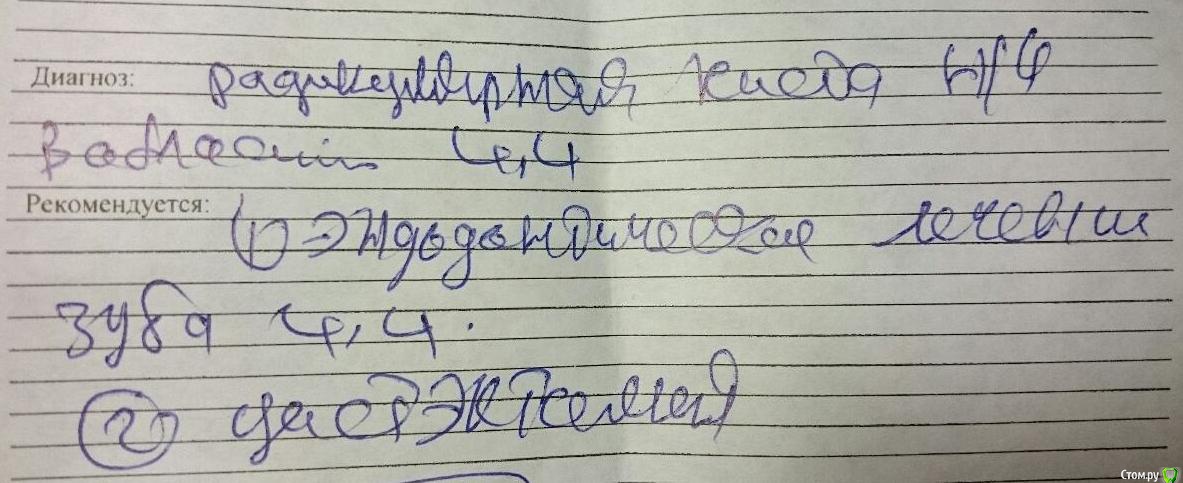 Диагноз: радикулярная киста н/ч
в области 4,4
Рекомендуется: 1) эндодонтическое лечение
зуба 4,4.
2) цистэктомия
Стом.ру